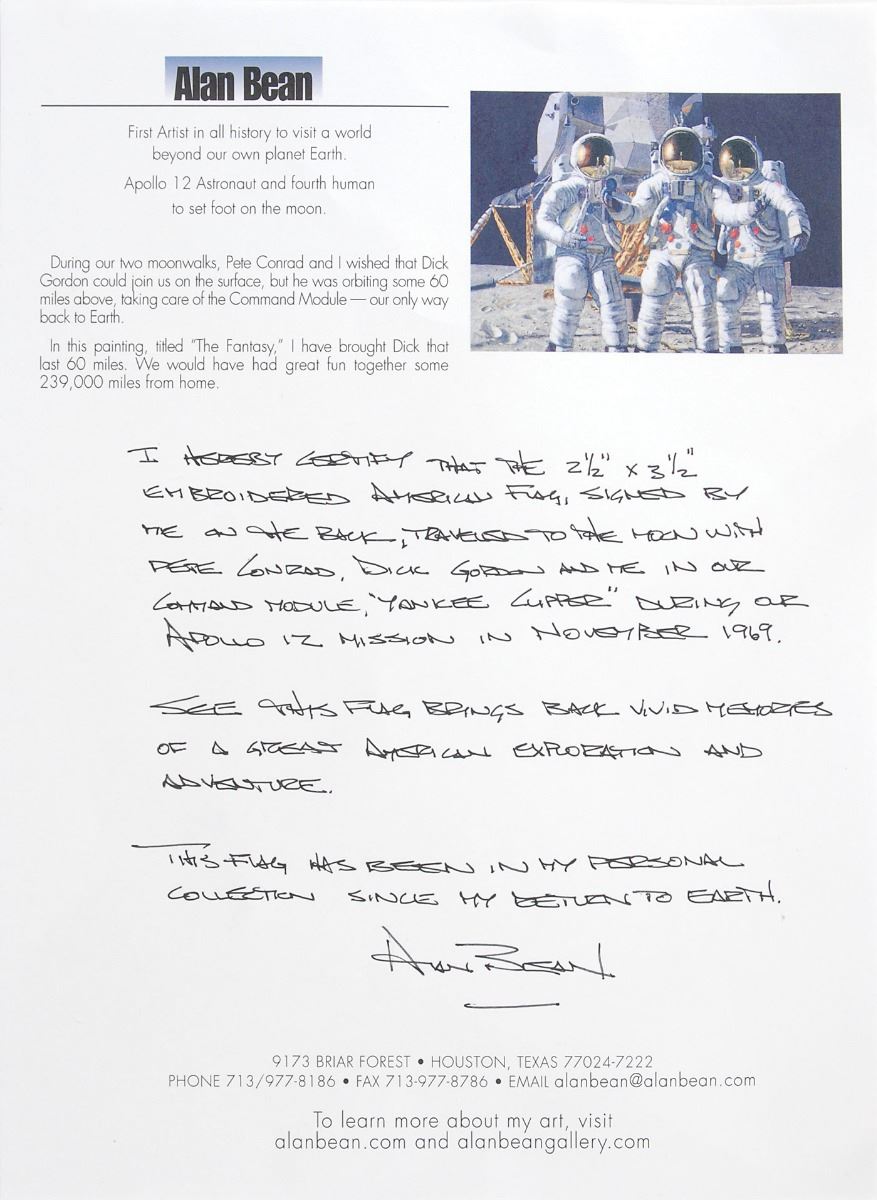 Alan Bean
First Artist in all history to visit a world
beyond our own planet Earth.
Apollo 12 Astronaut and fourth human
to set foot on the moon.
During our two moonwalks, Pete Conrad and I wished that Dick
Gordon could join us on the surface, but he was orbiting some 60
miles above, taking care of the Command Module — our only way
back to Earth.
In this painting, titled "The Fantasy," I have brought Dick that
last 60 miles. We would have had great fun together some
239,000 miles from home.
I HEREBY CERTIFY THAT THE 2½" x 3½"
EMBROIDERED AMERICAN FLAG, SIGNED BY
ME ON THE BACK, TRAVELED TO THE MOON WITH
PETE CONRAD, DICK GORDON AND ME IN OUR
COMMAND MODULE, "YANKEE CLIPPER" DURING OUR
APOLLO 12 MISSION IN NOVEMBER 1969.
SEE THIS FLAG BRINGS BACK VIVID MEMORIES
OF A GREAT AMERICAN EXPLORATION AND
ADVENTURE.
THIS FLAG HAS BEEN IN MY PERSONAL
COLLECTION SINCE MY RETURN TO EARTH.
ALAN BEAN.
9173 BRIAR FOREST • HOUSTON, TEXAS 77024-7222
PHONE 713/977-8186 • FAX 713-977-8786 • EMAIL alanbean@alanbean.com
To learn more about my art, visit
alanbean.com and alanbeangallery.com